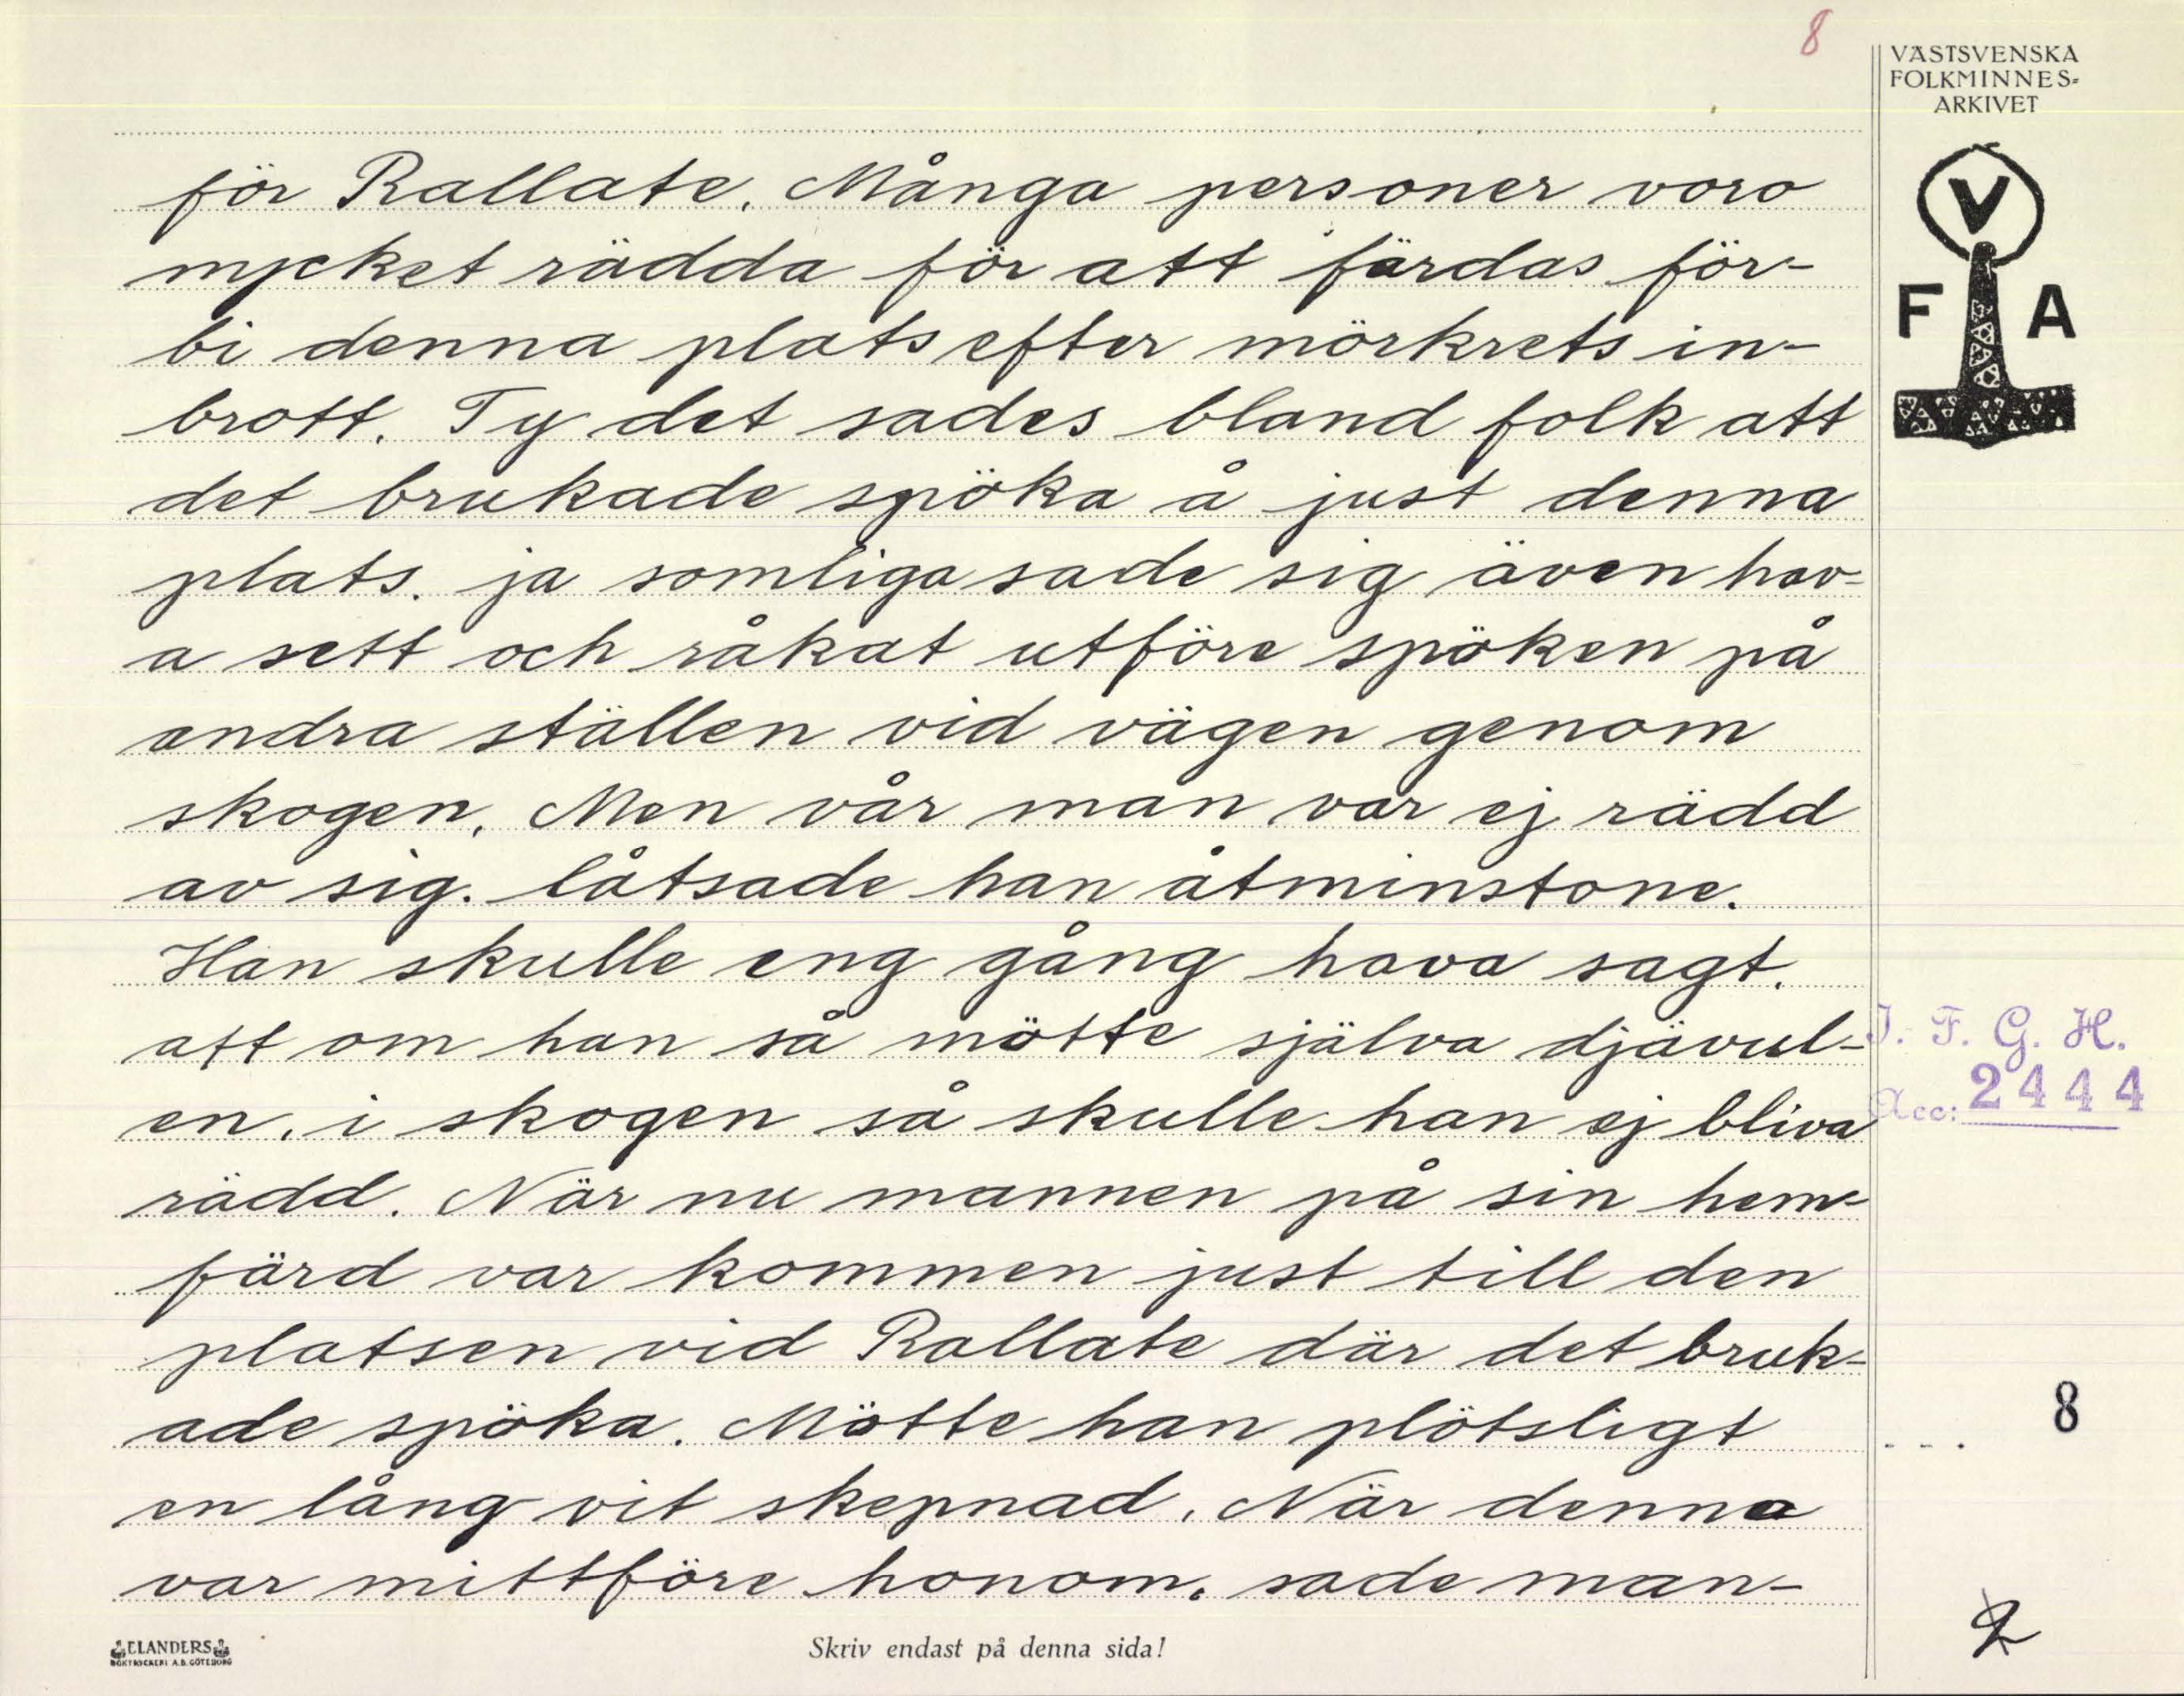 8
VÄSTSVENSKA
FOLKMINNES-
ARKIVET
V
F A
för Rallate. Många personer voro
mycket rädda för att färdas för-
bi denna plats efter mörkrets in-
brott. Ty det sades bland folk att
det brukade spöka å just denna
plats. ja somliga sade sig även hav-
a sett och råkat utföre spöken på
andra ställen vid vägen genom
skogen. Men vår man var ej rädd
av sig. låtsade han åtminstone.
Han skulle eng gång hava sagt.
att om han så mötte själva djävul-
en. i skogen så skulle han ej bliva
rädd. När nu mannen på sin hem-
färd var kommen just till den
platsen vid Rallate där det bruk-
ade spöka. Mötte han plötsligt
en lång vit skepnad. När denna
var mittföre honom. sade man-
I. F. G. H.
Acc: 2444
8
ELANDERS
BOKTRYCKERI A.B. GÖTEBORG
Skriv endast på denna sida!